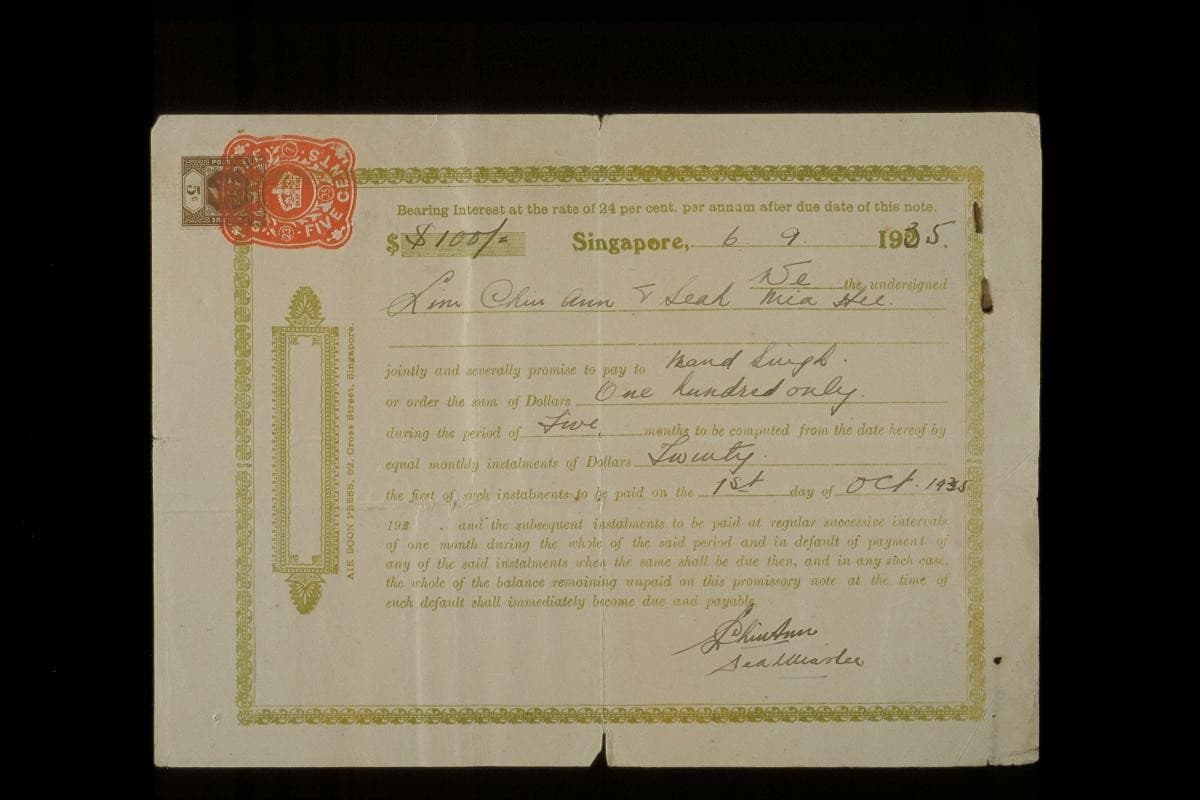 Bearing Interest at the rate of 24 per cent. per annum after due date of this note.
$ $100/= Singapore, 6. 9. 1935.
We the undersigned
Lim Chin Ann & Seah Mia Hee.
jointly and severally promise to pay to Mand Singh.
or order the sum of Dollars One hundred only.
during the period of Five months to be computed from the date hereof by
equal monthly instalments of Dollars Twenty.
the first of such instalments to be paid on the 1st day of Oct. 1935
192 . and the subsequent instalments to be paid at regular successive intervals
of one month during the whole of the said period and in default of payment of
any of the said instalments when the same shall be due then, and in any such case,
the whole of the balance remaining unpaid on this promissory note at the time of
such default shall immediately become due and payable.
ChinAnn
AIK DOON PRESS, 82, Cross Street, Singapore.
FIVE CENTS
23
35
5c